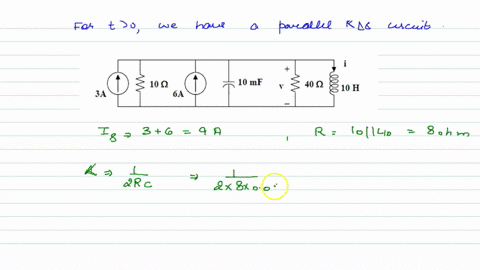 For t>0, we have a parallel RLC circuit.
3A 10 Ω 6A 10 mF + v − 40 Ω i 10 H
Is => 3+6 = 9 A , R = 10||40 = 8 ohm
α => 1/2RC => 1/2×8×0.0